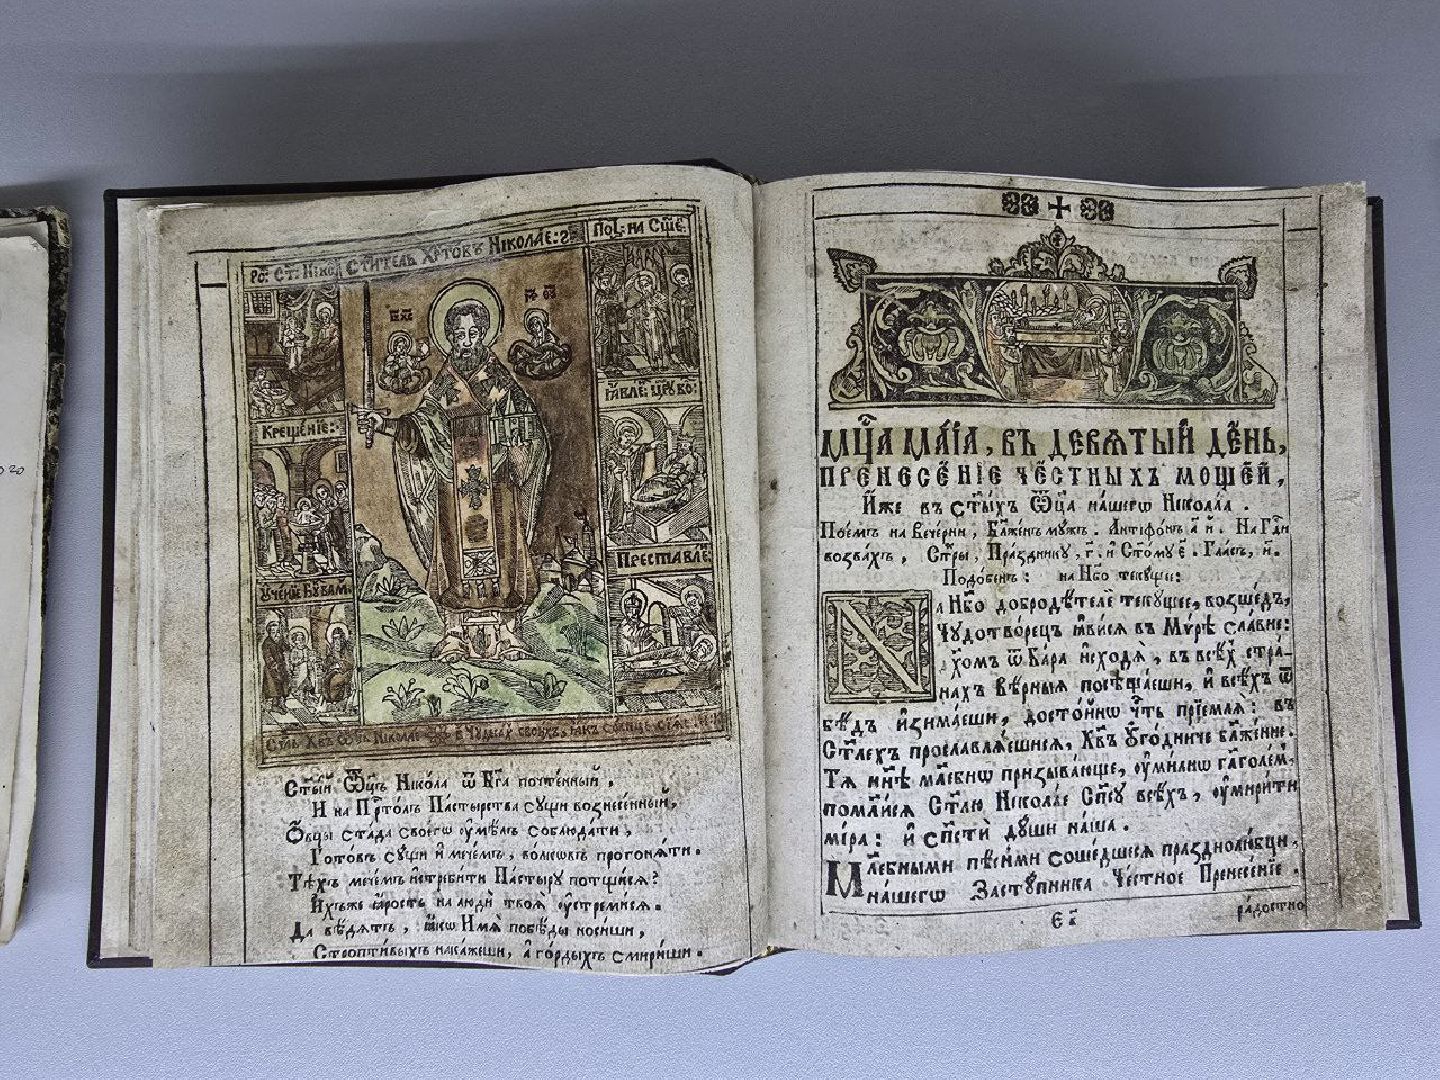 РО: СТ: НІКОЛ
СТ҃ИТЕЛЬ ХРТОВЪ НІКОЛАЕ:
ПОС: НА СЩ҃Е:
КРЕЩЕНІЕ:
ꙖВЛЕ: ЦРЮ КО:
ПРЕСТАВЛЕ:
Ст҃ый Ѿц҃ъ Нікола ѿ Бг҃а почтенный,
И на Прⷭ҇толъ Пастырства сущи вознесенный,
Ѻвцы стада своегѡ ᲂумѣлъ соблюдати,
Готовъ сущи и мечемъ, волковъ прогонѧти.
Тѣхъ мечемъ истребити Пастыру потщисѧ?
Ихъже ꙗрость на люди твоѧ ᲂустремисѧ.
Да вѣдѧтъ, ꙗкѡ Имѧ побѣды носиши,
Строптивыхъ накажеши, а гордыхъ смириши.
МЦ҃А МАІА, ВЪ ДЕВѦТЫЙ ДЕ́НЬ,
ПРЕНЕСЕ́НІЕ ЧЕСТНЫХЪ МОЩЕ́Й,
И́же въ ст҃ы́хъ Ѿц҃а на́шегѡ Николаа.
Пое́мъ на Вече́рни, Бл҃же́нъ му́жъ. Антіфѡ́нъ а҃ й. На Гдⷭ҇и
возва́хъ, Ст҃ры, Пра́зднику, г҃. и Ст҃ому е҃. Гла́съ, и҃.
Подо́бенъ: на Нб҃о текущее:
На Нб҃о добродѣтеле текущее, возше́дъ,
Чудотво́рецъ ꙗви́сѧ въ Мѵ́рѣ сла́вне:
дх҃омъ ѿ Ба́ра исходѧ̀, въ всѣ́хъ стра-
нахъ вѣ́рныѧ посѣща́еши, и всѣ́хъ ѿ
бѣ́дъ изима́еши, досто́йнѡ че́ть прїе́млѧ: въ
Ст҃лехъ прославлѧ́ешисѧ, Хв҃ъ ᲂуго́дниче бл҃же́нне.
Тѧ ны́нѣ мл҃ебнѡ призыва́юще, ᲂуми́лнѡ гл҃аго́лем,
помоли́сѧ Ст҃лю Ніко́лае Сп҃су всѣ́хъ, ᲂумири́ти
мі́ра: и сп҃сти̂ ду́ши на́ша.
Мл҃е́бными пѣ́сньми соше́дшесѧ празднолю́бци,
на́шегѡ Засту́пника Че́стное Пренесе́нїе.
є҃і
ра́достно